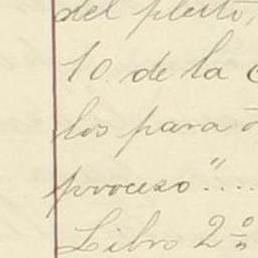 del pleito,
10 de la
los para
proceso"....
Libro 2º